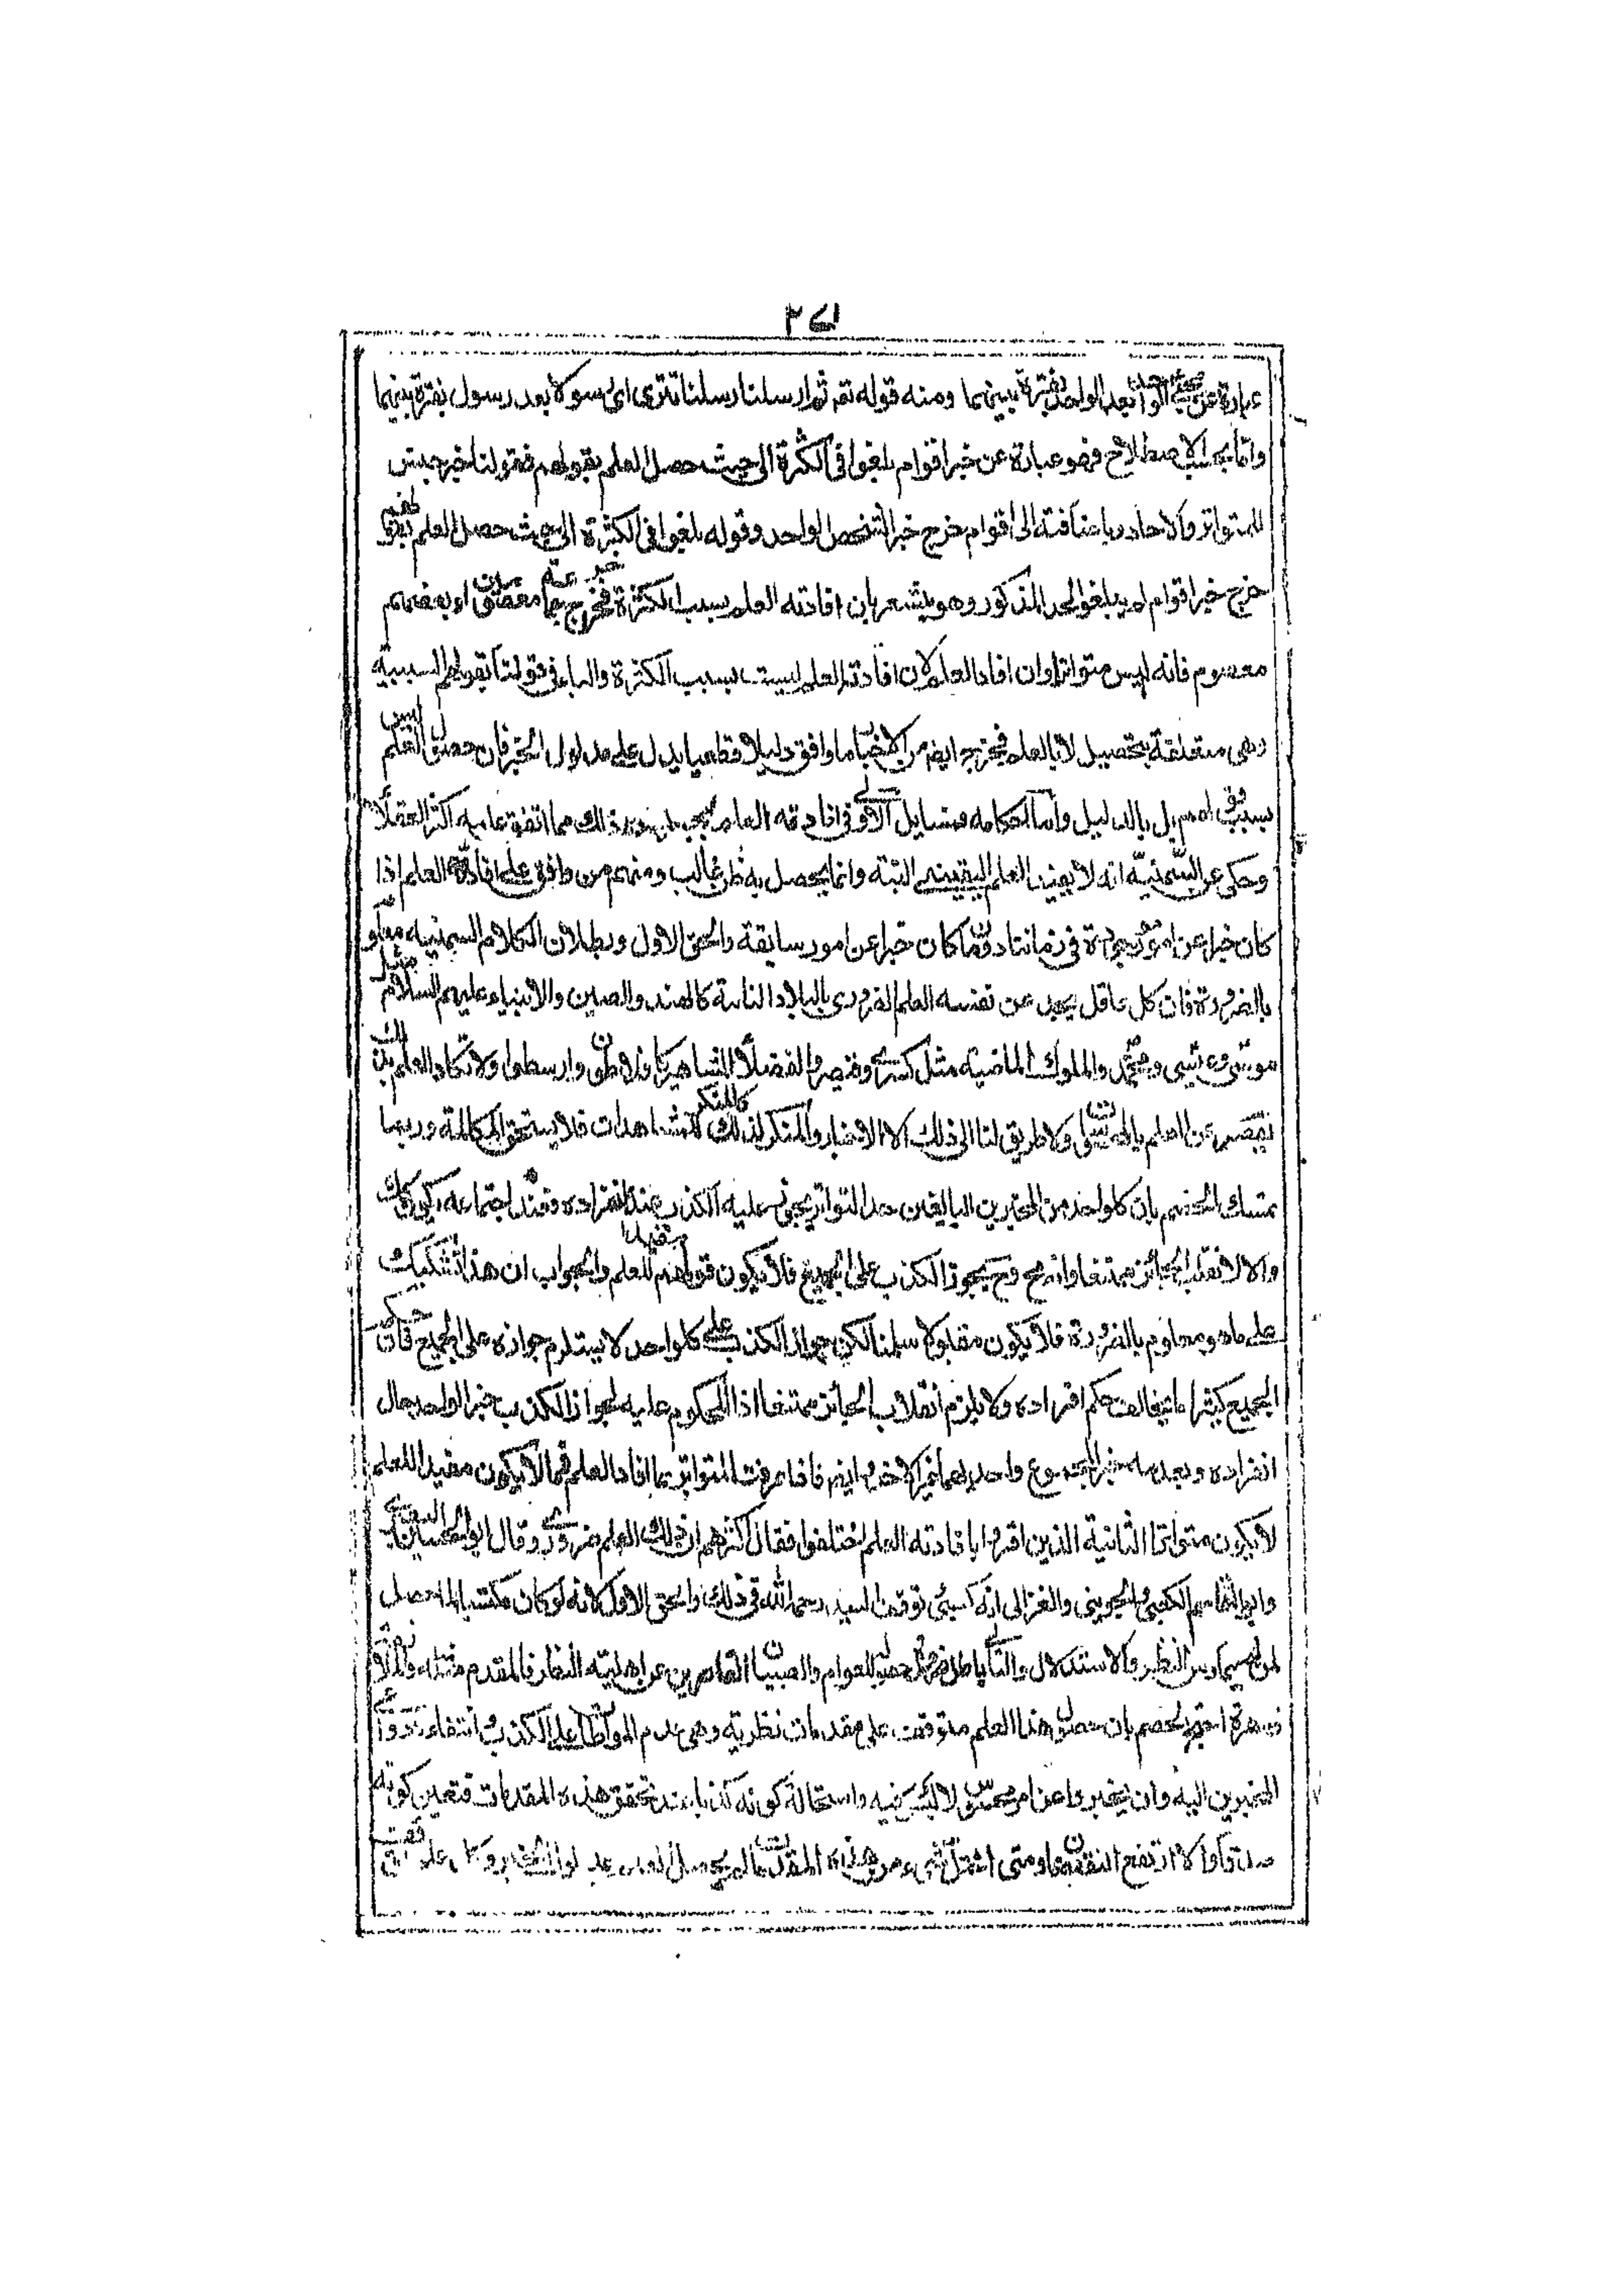 ٢٧١
عبارة عن مجيء الواحد بعد الواحد بفترة بينهما ومنه قوله تع ثم ارسلنا رسلنا تترى اى رسولا بعد رسول بفترة بينهما
واما بحسب الاصطلاح فهو عبارة عن خبر اقوام بلغوا فى الكثرة الى حيث حصل العلم بقولهم فقولنا خبر جنس
للمتواتر والاحاد وباضافته الى اقوام خرج خبر الشخص الواحد وقوله بلغوا فى الكثرة الى حيث حصل العلم بقولهم
خرج خبر اقوام لم يبلغوا الحد المذكور وهو يشعر بان افادته العلم بسبب الكثرة فخرج خبر جماعة معصومين او بعضهم
معصوم فانه ليس متواترا وان افاد العلم لان افادة العلم ليست بسبب الكثرة والباء فى قولنا بقولهم للسببية
وهى متعلقة بتحصيل لا بالعلم فخرج ايضا من الاخبار ما وافق دليلا قطعيا يدل على مدلول الخبر فان حصول العلم ليس
بسبب قولهم بل بالدليل واما احكامه فمسايل الاولى فى افادته العلم ذلك مما اتفق عليه اكثر العقلاء
وحكى عن السمنية انه لا يفيد العلم اليقينى البتة وانما يحصل به ظن غالب ومنهم من وافق على افادته العلم اذا
كان خبرا عن امور موجودة فى زماننا دون ما كان خبرا عن امور سابقة والحق الاول وبطلان الكلام السمنيه معلوم
بالضرورة فان كل عاقل يجد من نفسه العلم الضرورى بالبلاد النائية كالهند والصين والانبياء عليهم السلام مثل
موسى وعيسى ومحمد والملوك الماضيه مثل كسرى وقيصر والفضلاء المشاهير كافلاطون وارسطو ولا تكاد العلم بذلك
تقصر عن العلم بالمحسوسات ولا طريق لنا الى ذلك الا الاخبار والمنكر لذلك كالمنكر للمشاهدات فلا يستحق المكالمة وربما
تمسك الخصم بان كل واحد من المخبرين البالغين حد التواتر يجوز عليه الكذب عند انفراده وعند اجتماعه يكون كذلك
والا لانقلب الجائز ممتنعا وانه مح وح يجوز الكذب على الجميع فلا يكون قولهم مفيدا للعلم والجواب ان هذا تشكيك
على ما هو معلوم بالضرورة فلا يكون مقبولا سلمنا لكن جواز الكذب على كل واحد لا يستلزم جوازه على الجميع فان حكم
الجميع كثيرا ما يخالف حكم افراده ولا يلزم انقلاب الجائز ممتنعا اذ المحكوم عليه بجواز الكذب خبر الواحد حال
انفراده وبعدمه خبر المجموع واحدهما غير الاخر وايضا فانا عرفت المتواتر بما افاد العلم فما لا يكون مفيدا للعلم
لا يكون متواترا الثانية الذين اقروا بافادته العلم اختلفوا فقال اكثرهم ان ذلك العلم ضرورى وقال ابو الحسين البصرى
وابو القاسم الكعبى والجوينى والغزالى انه كسبى توقف السيد رحمه الله فى ذلك والحق الاول لانه لو كان مكتسبا لما حصل
لمن لم يمارس النظر والاستدلال والتالى باطل ضرورة حصوله للعوام والصبيان القاصرين عن اهلية النظر فالمقدم مثله والملازمة
ظاهرة احتج الخصم بان حصول هذا العلم متوقف على مقدمات نظرية وهى عدم المواطاة على الكذب وانتفاء دواعى
المخبرين اليه وان يخبروا عن امر محسوس لا لبس فيه واستحالة كونه كذبا عند تحقق هذه المقدمات فتعين كونه
صدقا والا لارتفع النقيضان ومتى اختل شىء من هذه المقدمات لم يحصل العلم